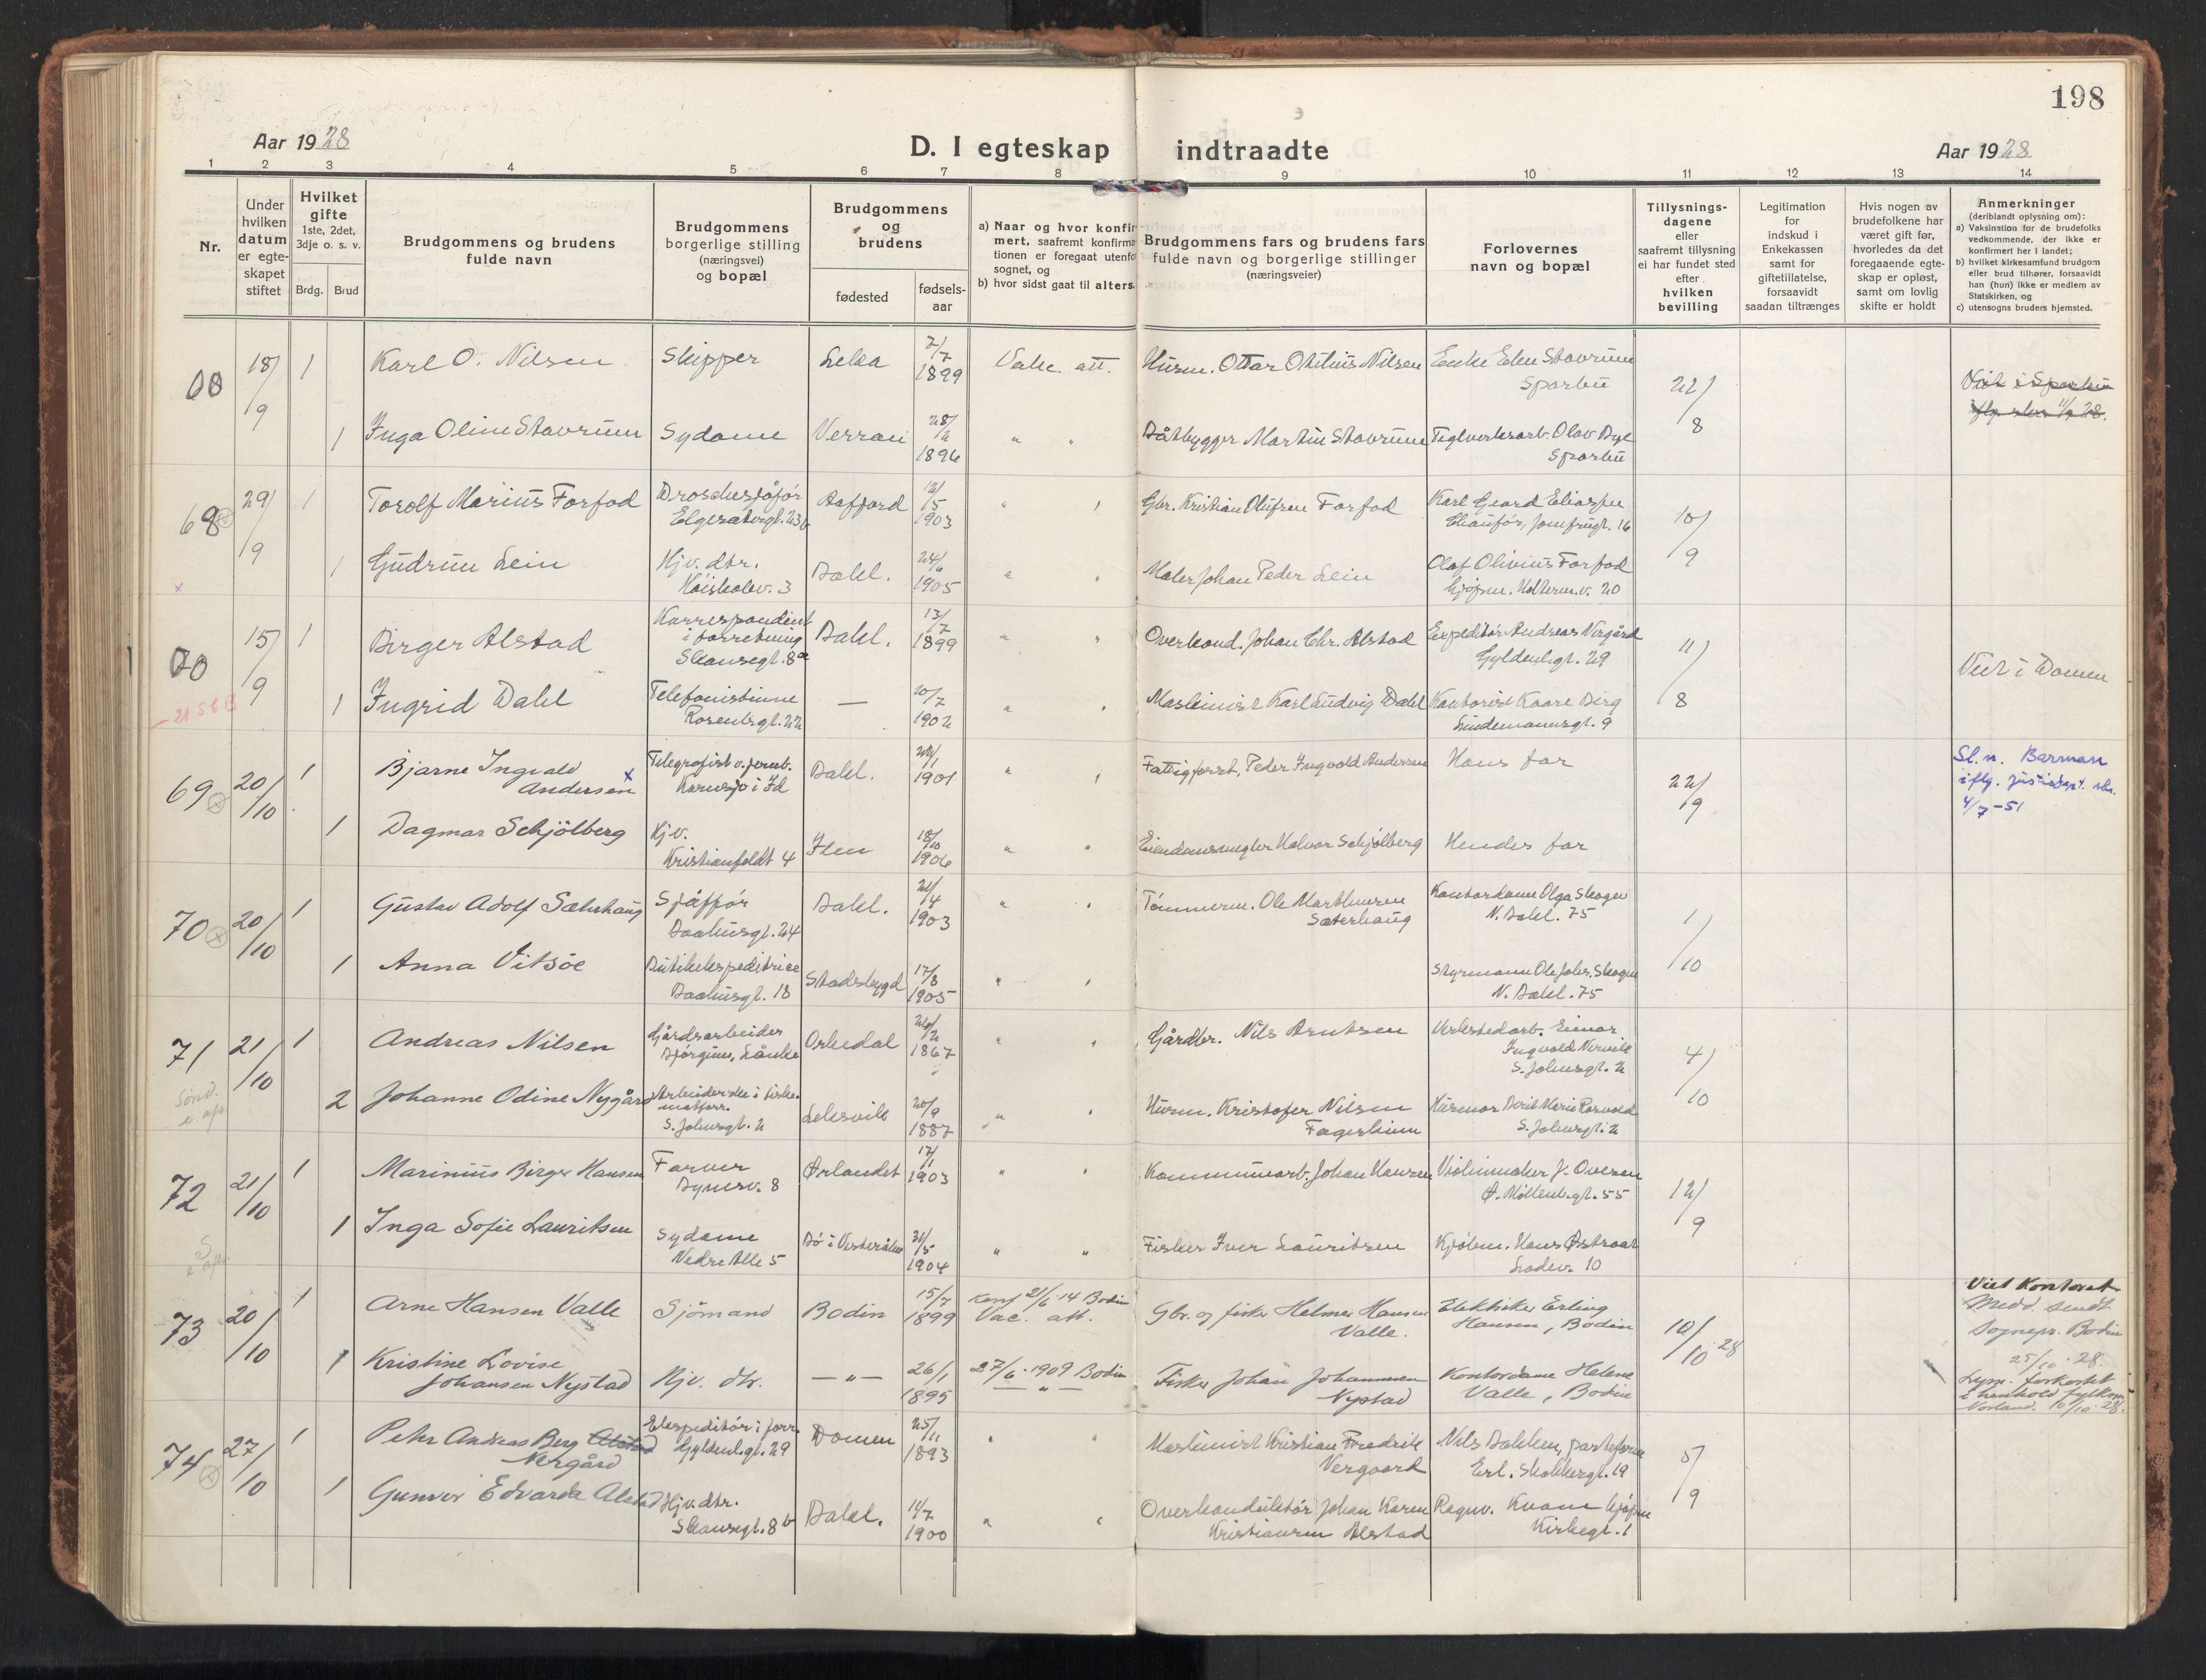 198
Aar 1928
D. I egteskap indtraadte
Aar 1928
1 2 3 4 5 6 7 8 9 10 11 12 13 14
Nr.
Under hvilken datum er egte-skapet stiftet
Hvilket gifte 1ste, 2det, 3dje o. s. v.
Brdg. Brud
Brudgommens og brudens fulde navn
Brudgommens borgerlige stilling (næringsvei) og bopæl
Brudgommens og brudens
fødested
fødsels-aar
a) Naar og hvor konfir
mert, saafremt konfirma
tionen er foregaat utenfo
sognet, og
b) hvor sidst gaat til alters.
Brudgommens fars og brudens fars
fulde navn og borgerlige stillinger
(næringsveier)
Forlovernes
navn og bopæl
Tillysnings-
dagene
eller
saafremt tillysning
ei har fundet sted
efter
hvilken
bevilling
Legitimation
for
indskud i
Enkekassen
samt for
giftetillatelse,
forsaavidt
saadan tiltrænges
Hvis nogen av
brudefolkene har
været gift før,
hvorledes da det
foregaaende egte-
skap er opløst,
samt om lovlig
skifte er holdt
Anmerkninger
(deriblandt oplysning om):
a) Vaksination for de brudefolks
vedkommende, der ikke er
konfirmert her i landet;
b) hvilket kirkesamfund brudgom
eller brud tilhører, forsaavidt
han (hun) ikke er medlem av
Statskirken, og
c) utensogns bruders hjemsted.
68 18/9 1 Karl O. Nilsen Skipper Leka 7/7 1899 Vakc. att. Husm. Ottar Otelius Nilsen Enke Elen Stavrum
Sparbu 22/8
Viet i Sparbu
1 Inga Oline Stavrum Sydame Verran 1896 " " Båtbygger Martin Stavrum Teglverksarb. Olav Dyl
Sparbu
69 29/9 1 Torolf Marius Forfod Droschesjåfør
Elgesetergt. 23b Aafjord 12/5 1903 " " Gbr. Kristian Olufsen Forfod Karl Geard Eliassen
Chaufør, Jomfrugt. 16 10/9
1 Gudrun Lein Hjv. dtr.
Høiskolev. 3 Bakl. 24/6 1905 " " Maler Johan Peder Lein Olaf Olivius Forfod
kjøpm. Holterm.v. 20
x
70 15/9 1 Birger Alstad Korrespondent
i forretning
Skansegt. 8a Bakl. 13/7 1899 " " Overkond. Johan Chr. Alstad Expeditør Andreas Nergård
Gyldenl.gt. 29 11/8 Viet i Domen
1 Ingrid Dahl Telefonistinne
Rosenb.gt. 22 — 20/7 1902 " " Maskinist Karl Ludvig Dahl Kontorist Kaare Berg
Lindemannsgt. 9
69 20/10 1 Bjarne Ingvald
Andersen x Telegrafist v. jernb.
Kornsjø i Id Bakl. 1901 " " Fattigforst. Peder Ingvald Andersen Hans far 22/9
Sl.n. Barman
iflg. justisdept. skr.
4/7-51
1 Dagmar Schjölberg Hjv.
Kristianfeldt 4 Ilen 18/10 1906 " " Eiendomsmegler Halvor Schjølberg Hendes far
70 20/10 1 Gustav Adolf Sæterhaug Sjåffør
Baahusgt. 24 Bakl. 21/4 1903 " " Tømmerm. Ole Marthinsen
Sæterhaug Kontordame Olga Skogen
N. Bakl. 75 1/10
1 Anna Vitsöe Butikekspeditrice
Baahusgt. 18 Stadsbygd 17/8 1905 " " Styrmann Ole Johs. Skogen
N. Bakl. 75
71 21/10 1 Andreas Nilsen Gårdsarbeider
Bjørgum, Lånke Orkedal 26/2 1867 " " Gårdbr. Nils Arntsen Verkstedarb. Einar
Ingvald Nervik
S. Johnsgt. 2 4/10
2 Johanne Odine Nygård
S. Johnsgt. 2 Leksvik 20/9 1887 " " Husm. Kristofer Nilsen
Fagerheim Husmor Berit Marie Rosvold
S. Johnsgt. 2
72 21/10 1 Marinius Birger Hansen Farver
Bynesv. 8 Ørlandet 17/1 1903 " " Kommunearb. Johan Hansen Violinmaker J. Overen
Ø. Møllenb.gt. 55 12/9
1 Inga Sofie Lauritsen Sydame
Nedre Alle 5 Bø i Vesterålen 31/5 1904 " " Fisker Iver Lauritsen Kjøbm. Hans Østraat
Ladev. 10
73 20/10 1 Arne Hansen Valle Sjømand Bodin 15/7 1899 Konf 21/6 14 Bodin
Vac. att. Gbr. og fisker Helmer Hansen
Valle. Elektriker Erling
Hansen, Bodin 10/10 28
Viet Kontoret
Medd. sendt
Sognepr. Bodin
25/10. 28.
Lysn. forkortet
i henhold fylkesm
Norland. 10/10. 28.
1 Kristine Lovise
Johansen Nystad Hjv. dtr. —"— 26/1 1895 27/6. 1909 Bodin
—"— Fisker Johan Johannesen
Nystad Kontordame Helene
Valle, Bodin
74 27/10 1 Peter Andreas Berg Alstad
Nergård Ekspeditør i forr.
Gyldenl.gt. 29 Domen 25/11 1893 " " Maskinist Kristian Fredrik
Nergaard Nils Bakken,
Erl. Skakkesgt. 19 5/9
1 Gunvor Edvarda Alstad Hjv. dtr.
Skansegt. 8b Bakl. 11/7 1900 " " Overkonduktør Johan Karen
Kristiansen Alstad Ragnv. Kvam kjøpm
Kirkegt. 1